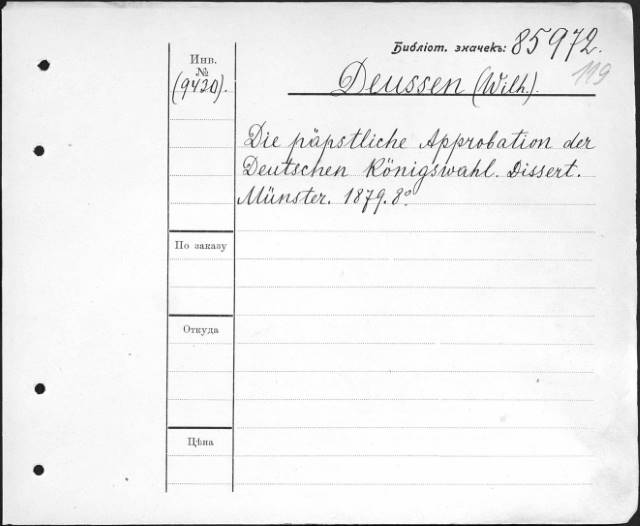 Библіот. значекъ: 85972.
119
Инв.
№
(9420).
Deussen (Wilh.).
Die päpstliche Approbation der
Deutschen Königswahl. Dissert.
Münster. 1879. 8°.
По заказу
Откуда
Цѣна